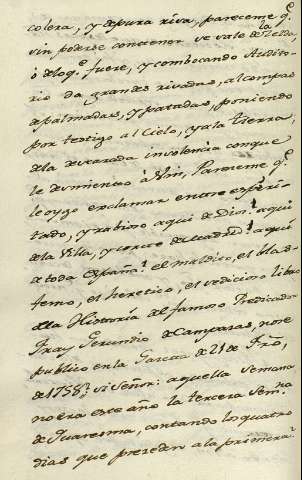 colera, y de pura risa, pareceme q.e
sin poderse contener se sale de la Zelda,
ò de loq.e fuere, y combocando Audito-
rio da grandes risadas, al compas
de palmadas, y patadas, poniendo
por testigo al Cielo, y a la tierra,
de la descarada insolencia con que
le desmiento à Vm, Pareceme q.e
le oygo exclamar entre esperi-
tado, y rabioso aqui de Dios! aqui
de la Villa, y corte de Madrid! aqui
de toda España! el maldito, el blas-
femo, el heretico, el sedicioso libro
de la Historia del famoso Predicador
Fray Gerundio de Campazas, no se
publicò en la Gazeta de 21 de Fro,
de 1758? si Señor: aquella semana
no era este año la tercera Sem.na
de Quaresma, contando los quatro
dias que preseden a la primera?